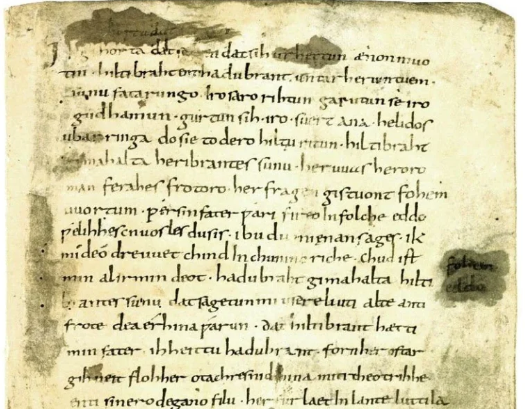 horta dat dat sih urhettun ænon muo
tin · hiltibraht enti hadubrant · untar heriun tuem ·
sunu fatarungo · iro saro rihtun garutun se iro
gudhamun · gurtun sih · iro · suert ana · helidos
ubar ringa do sie to dero hiltu ritun · hiltibraht
gimahalta heribrantes sunu · her uuas heroro
man ferahes frotoro · her fragen gistuont fohem
uuortum · ƿer sin fater ƿari fireo in folche eddo
ƿelihhes cnuosles du sis · ibu du mi enan sages · ik
mideo dre uuet chind in chuninc riche · chud ist
min al irmin deot · hadubraht gimahalta hilti
brantes sunu · dat sagetun mi usere liuti alte anti
frote dea erhina ƿarun · dat hiltibrant hætti
min fater · ih heittu hadubrant · forn her ostar
gihueit floh her otachres nid hina miti theotrihhe
enti sinero degano filu · her fur laet in lante luttila
folche
eddo